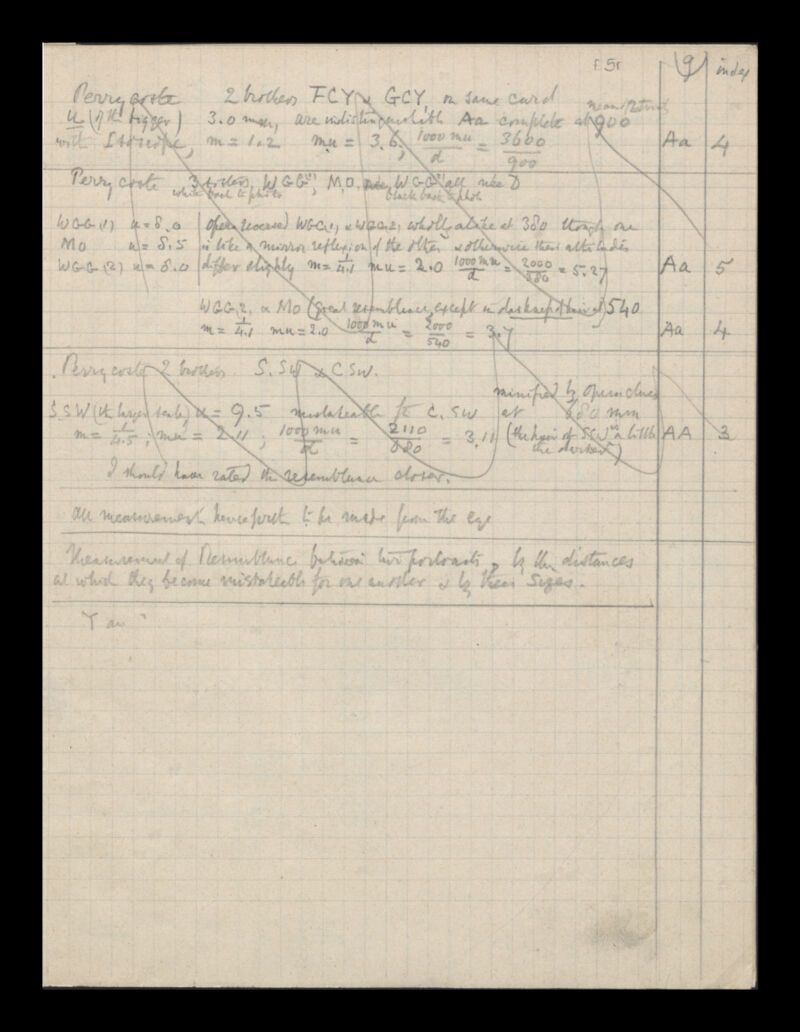 f 5r
g index
Perrycoste 2 brothers FCY & GCY, on same card
u (of the bigger) 3.0 mm, are indistinguishable Aa complete at 900
with Isoscope, m = 1.2 mu = 3.6, 1000 mu / d = 3600 / 900 Aa 4
Perrycoste 3 brothers, WGG(1), MO, WGG(2) all size D
white back to photo black back to photo
WGG(1) u = 8.0 opera reversed WGG(1) & WGG(2) wholly alike at 380 though one
MO u = 8.5 is like a mirror reflexion of the other & otherwise their attitudes
WGG(2) u = 8.0 differ slightly m = 1/4.1 mu = 2.0 1000 mu / d = 2000 / 380 = 5.27 Aa 5
WGG 2, & MO (Great resemblance except in darkness of hair at) 540
m = 1/4.1 mu = 2.0 1000 mu / d = 2000 / 540 = 3.7 Aa 4
Perrycoste 2 brothers S.SW & C SW.
minified by opera
S.SW (the larger scale) u = 9.5 mistakeable for C. SW at 680 mm
m = 1/4.5; mu = 2.11; 1000 mu / d = 2110 / 680 = 3.11 (the hair of SSW is a little AA 3
the darkest)
I should have rated the resemblance closer.
All measurements henceforth to be made from the eye
Measurement of Resemblance between two portraits, by the distances
at which they become mistakeable for one another & by their sizes.